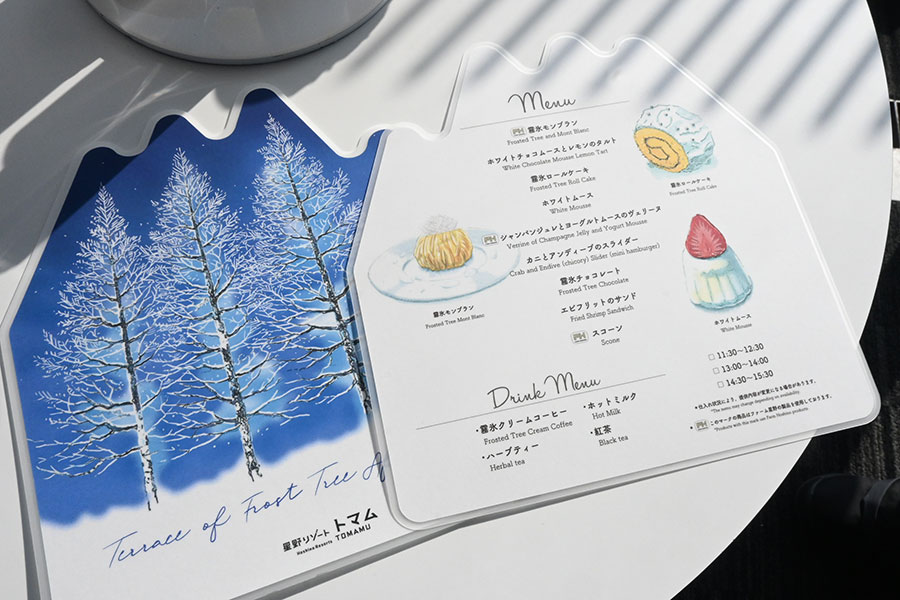 Terrace of Frost Tree A
星野リゾート トマム
Hoshino Resorts TOMAMU
Menu
FH 霧氷モンブラン
Frosted Tree and Mont Blanc
ホワイトチョコムースとレモンのタルト
White Chocolate Mousse Lemon Tart
霧氷ロールケーキ
Frosted Tree Roll Cake
ホワイトムース
White Mousse
FH シャンパンジュレとヨーグルトムースのヴェリーヌ
Verrine of Champagne Jelly and Yogurt Mousse
カニとアンディーブのスライダー
Crab and Endive (chicory) Slider (mini hamburger)
霧氷チョコレート
Frosted Tree Chocolate
エビフリットのサンド
Fried Shrimp Sandwich
FH スコーン
Scone
霧氷ロールケーキ
Frosted Tree Roll Cake
霧氷モンブラン
Frosted Tree Mont Blanc
ホワイトムース
White Mousse
Drink Menu
・霧氷クリームコーヒー
Frosted Tree Cream Coffee
・ハーブティー
Herbal tea
・ホットミルク
Hot Milk
・紅茶
Black tea
□ 11:30~12:30
□ 13:00~14:00
□ 14:30~15:30
※仕入れ状況により、提供内容が変更になる場合があります。
*The menu may change depending on availability.
FH このマークの商品はファーム星野の製品を使用しております。
*Products with this mark use Farm Hoshino products.